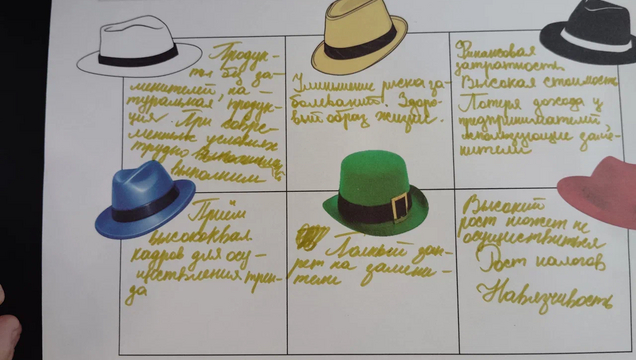 Продук-
ты без за-
менителей, на-
туральная продук-
ция. При совре-
менных условиях
трудно
выполнением
Уменьшение риска за-
болеваний. Здоро-
вый образ жизни.
Финансовая
затратность
Высокая стоимость
Потеря дохода у
предпринимателей
использующие заме-
нители
Приём
высококвал.
кадров для осу-
ществления трен-
да
Полный зап-
рет на замени-
тели
Высокий
рост может не
осуществиться
Рост налогов
Навязчивость